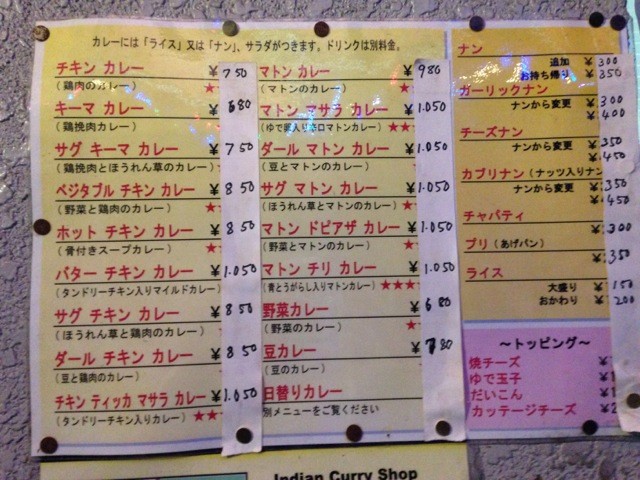 カレーには「ライス」又は「ナン」、サラダがつきます。ドリンクは別料金。
チキン カレー ¥750
（鶏肉のカレー） ★
キーマ カレー ¥680
（鶏挽肉カレー）
サグ キーマ カレー ¥750
（鶏挽肉とほうれん草のカレー）
ベジタブル チキン カレー ¥850
（野菜と鶏肉のカレー） ★
ホット チキン カレー ¥850
（骨付きスープカレー） ★
バター チキン カレー ¥1.050
（タンドリーチキン入りマイルドカレー）
サグ チキン カレー ¥850
（ほうれん草と鶏肉のカレー）
ダール チキン カレー ¥850
（豆と鶏肉のカレー） ★
チキン ティッカ マサラ カレー ¥1.050
（タンドリーチキン入りカレー） ★★
マトン カレー ¥980
（マトンのカレー） ★
マトン マサラ カレー ¥1.050
（ゆで卵入り辛口マトンカレー） ★★
ダール マトン カレー ¥1.050
（豆とマトンのカレー） ★
サグ マトン カレー ¥1.050
（ほうれん草とマトンのカレー） ★
マトン ドピアザ カレー ¥1.050
（野菜とマトンのカレー） ★
マトン チリ カレー ¥1.050
（青とうがらし入りマトンカレー） ★★★
野菜カレー ¥680
（野菜のカレー） ★
豆カレー ¥780
（豆のカレー） ★
日替りカレー
別メニューをご覧ください
ナン
追加 ¥300
お持ち帰り ¥350
ガーリックナン ¥300
ナンから変更 ¥400
チーズナン ¥350
ナンから変更 ¥450
カブリナン（ナッツ入りナン
ナンから変更 ¥350
¥450
チャパティ ¥300
プリ（あげパン） ¥350
ライス
大盛り ¥150
おかわり ¥200
～トッピング～
焼チーズ ¥
ゆで玉子 ¥
だいこん ¥
カッテージチーズ ¥
Indian Curry Shop